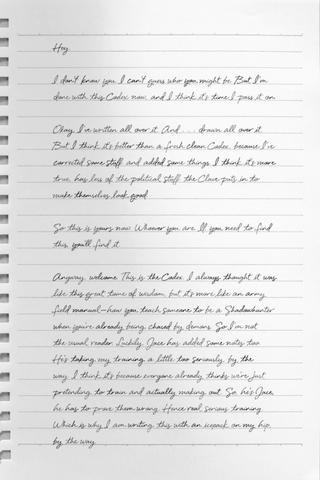 Hey
I don't know you. I can't guess who you might be. But I'm
done with this Codex now, and I think it's time I pass it on.
Okay, I've written all over it. And . . . drawn all over it.
But I think it's better than a fresh clean Codex, because I've
corrected some stuff and added some things. I think it's more
true, has less of the political stuff the Clave puts in to
make themselves look good.
So this is yours now. Whoever you are. If you need to find
this, you'll find it.
Anyway, welcome. This is the Codex. I always thought it was
like this great tome of wisdom, but it's more like an army
field manual—how you teach someone to be a Shadowhunter
when you're already being chased by demons. So I'm not
the usual reader. Luckily, Jace has added some notes too.
He's taking my training a little too seriously, by the
way. I think it's because everyone already thinks we're just
pretending to train and actually making out. So, he's Jace,
he has to prove them wrong. Hence real, serious training.
Which is why I am writing this with an icepack on my hip,
by the way.